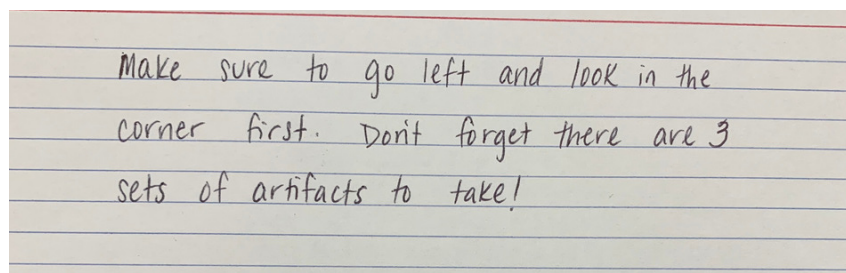 Make sure to go left and look in the
corner first. Don't forget there are 3
sets of artifacts to take!